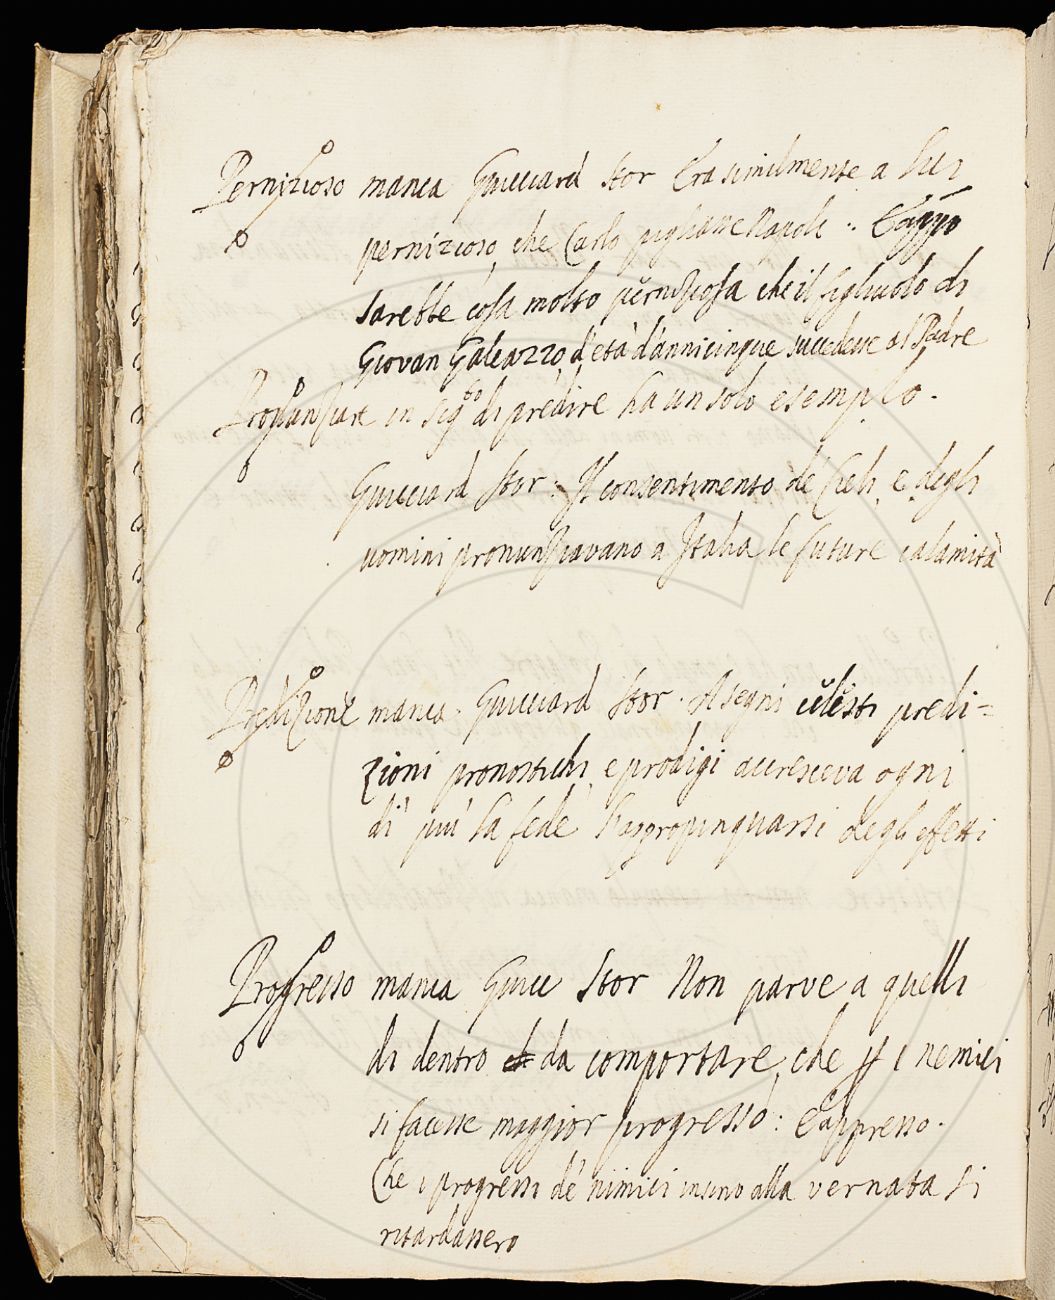 Pernizioso manca Guicciard Stor Era similmente a lui
pernizioso, che Carlo pigliasse Napoli : E appo
sarebbe cosa molto perniziosa che il figliuolo di
Giovan Galeazzo, d'età d'anni cinque succedesse al Padre
Pronunziare in sig.to di predire ha un solo esemplo.
Guicciard Stor: Il consentimento de' Cieli, e degli
uomini pronunziavano a Italia le future calamità
Predizione manca. Guicciard Stor. A segni celesti predi=
zioni pronostichi, e prodigi accresceva ogni
dì più la fede l'appropinquarsi degli effetti
Progresso manca Guicc Stor Non parve a quelli
di dentro da comportare, che i nemici
si facesse maggior progresso: E appresso.
Che i progressi de' nimici insino alla vernata si
ritardassero